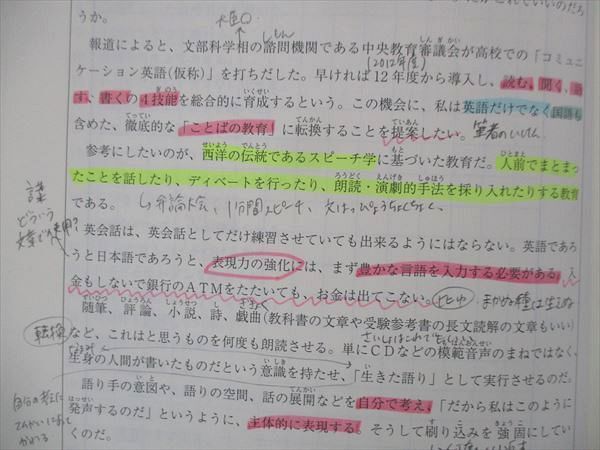 うか。
大臣
報道によると、文部科学相の諮問機関である中央教育審議会が高校での「コミュニ
(2012年度)
ケーション英語(仮称)」を打ちだした。早ければ12年度から導入し、読む、聞く、
す、書くの4技能を総合的に育成するという。この機会に、私は英語だけでなく国語も
含めた、徹底的な「ことばの教育」に転換することを提案したい。
筆者のいけん
参考にしたいのが、西洋の伝統であるスピーチ学に基づいた教育だ。人前でまとまっ
たことを話したり、ディベートを行ったり、朗読・演劇的手法を採り入れたりする教育
である。
弁論大会、1分間スピーチ、
英会話は、英会話としてだけ練習させていても出来るようにはならない。英語であろ
うと日本語であろうと、表現力の強化には、まず豊かな言語を入力する必要がある。入
金もしないで銀行のATMをたたいても、お金は出てこない。
まかぬ種は生えぬ
随筆、評論、小説、詩、戯曲(教科書の文章や受験参考書の長文読解の文章もいい)
転換
など、これはと思うものを何度も朗読させる。単にCDなどの模範音声のまねではなく、
生身の人間が書いたものだという意識を持たせ、「生きた語り」として実行させるのだ。
語り手の意図や、語りの空間、話の展開などを自分で考え、「だから私はこのように
発声するのだ」というように、主体的に表現する。そうして刷り込みを強固にしてい
くのだ。